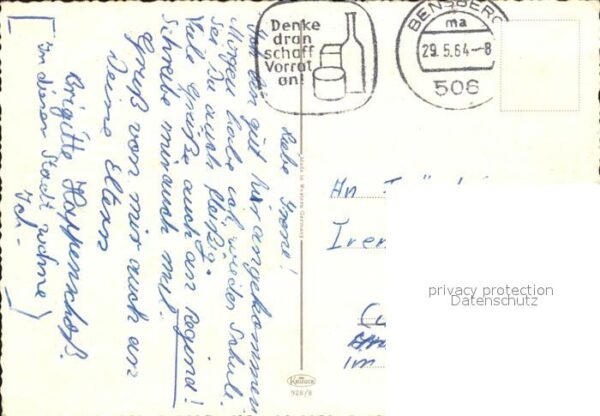 Liebe Irene!
Ich bin gut hier angekommen.
Morgen habe ich wieder Schule.
Sei Du auch fleißig.
Viele Grüße auch an Regina!
Schreibe mir auch mal.
Gruß von mir auch an
Deine Eltern
Brigitte
[In dieser Stadt wohne
Ich.]
Denke
dran
schaff
Vorrat
an!
BENSBERG
ma
29.5.64-8
506
Made in Western Germany
An
Iren
im
privacy protection
Datenschutz
Krüger
928/8